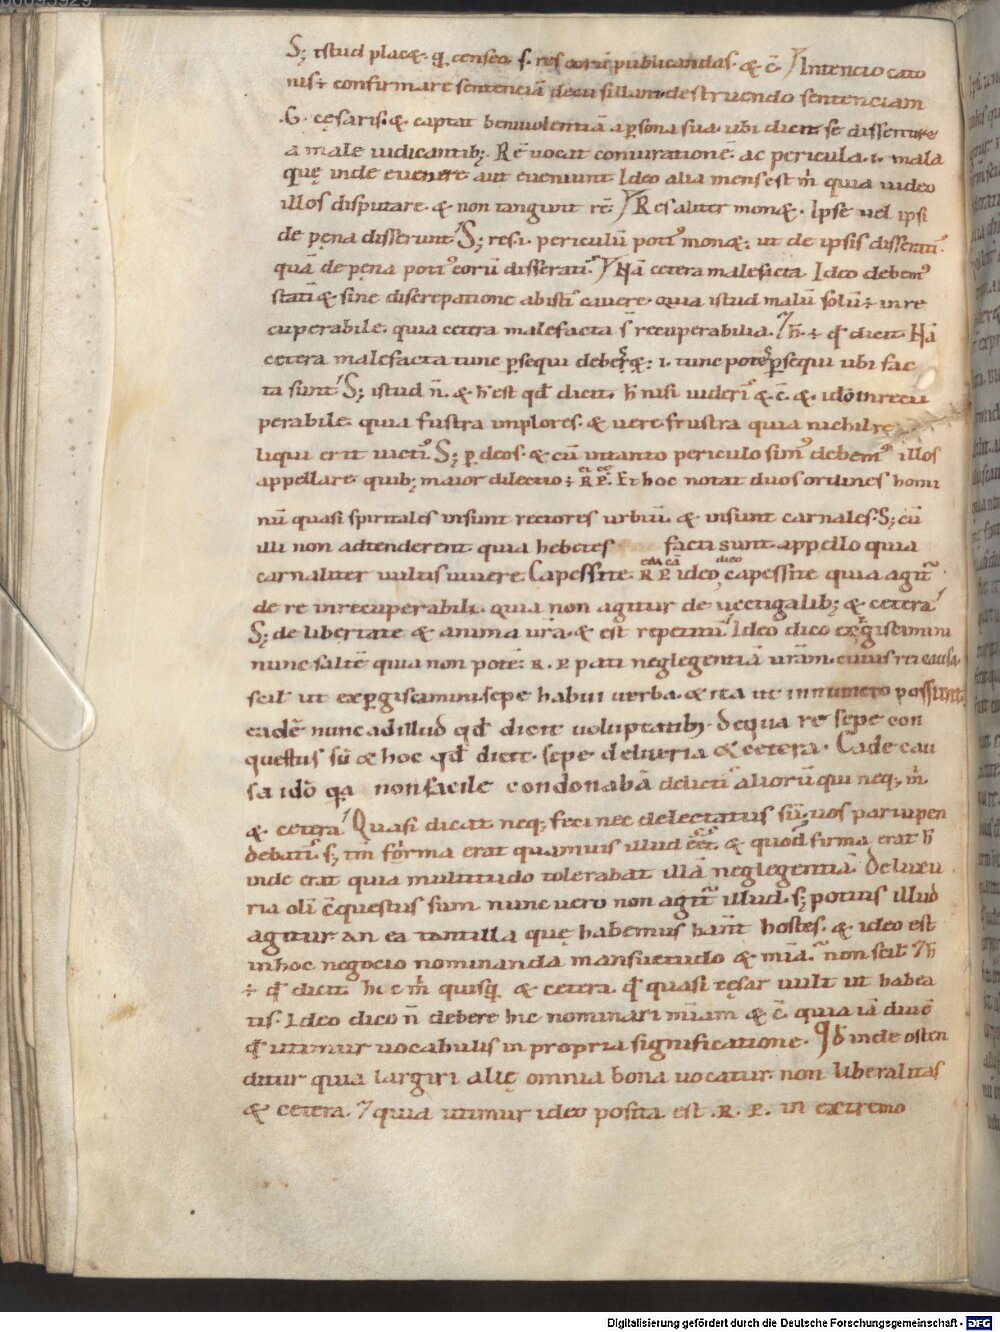 S; istud placꝫ. q censeo .s. res eorū publicandas. & c̄. Intencio cato
nis ÷ confirmare sentenciā decii sillani. destruendo sentenciam
.G. cęsaris. & captat benivolentiā a ꝑsona sua. ubi dicit se dissentire
a male iudicantibꝫ. Rē vocat coniurationē. ac pericula .i. mala
quę inde evenere aut eveniunt. Ideo alia mens est m̄ quia video
illos disputare. & non tangunt rē. Res aliter monꝫ. Ipse vel ipsi
de pęna disserunt. S; res .i. periculū poti᾽ monꝫ. ut de ipsis disserat᾽
quā de pęna poti᾽ eorū disserati᾽. Nā cetera malefacta. Ideo debem᾽
statī & sine discrepatione ab isti᾽ cavere. quia istud malū solū ÷ inre
cuperabile. quia cetera malefacta s̄ recuperabilia. h̄ ÷ qd̄ dicit. Nā
cetera malefacta tunc ꝑsequi deberꝫ .i. tunc potē ꝑsequi ubi fac
ta sunt. S; istud n̄. & h̄ est qd̄ dicit. h̄ nisi videri᾽ & c̄. & idō inrecu
perabile. quia fustra implores. & vere frustra quia nichil re
liqui erit victi᾽. S; ꝑ deos. & cū in tanto periculo sim᾽ debem᾽ illos
appellare quibꝫ maior dilectio ÷ R.P. Et hoc notat duos ordines homi
nū quasi spiritales insunt rectores urbiū. & insunt carnales. S; cū
illi non adtenderent. quia hebetes facti sunt. appello quia
carnaliter vultis vivere. Capessite. R.P. ideo dico capessite quia agit᾽
de re inrecuperabili. quia non agitur de vectigalibꝫ & cetera.
S; de libertate & anima vr̄a. & est repetitū. Ideo dico exꝑgiscimini
nunc saltē quia non potē. R.P. pati neglegentiā vr̄am. cuius rei causa.
scil ut exꝑgiscamini. sepe habui verba. & ita ut in numero possunt
eadē nunc ad illud qd̄ dicit voluptatibꝫ. De qua re sepe con
questus sū & hoc qd̄ dicit. sepe de luxuria & cetera. Eade cau
sa idō qa non facile condonabā delicti aliorū qui neqꝫ m̄
& cetera. Quasi dicat neqꝫ feci nec delectatus sū. vos parvipen
debati᾽. s; tm̄ firma erat quamvis illud eēt. & quod firma erat h̄
inde erat quia multitudo tolerabat illā neglegentiā. De luxu
ria olī c̄questus sum nunc vero non agit᾽ illud. s; potius illud
agitur an ea tantilla quę habemus habn̄t hostes. & ideo est
in hoc negocio nominanda mansuetudo & mīa. non scil. h̄
÷ qd̄ dicit. hic m̄ quisqꝫ & cetera. qd̄ quasi cęsar vult ut habea
tis. Ideo dico n̄ debere hic nominari mīam & c̄. quia iā diu ē
qd̄ utimur vocabulis in propria significatione. Qd̄ inde osten
ditur quia largiri alię omnia bona vocatur. non liberalitas
& cetera. & quia utimur ideo posita est .R. P. in extremo
Digitalisierung gefördert durch die Deutsche Forschungsgemeinschaft - DFG